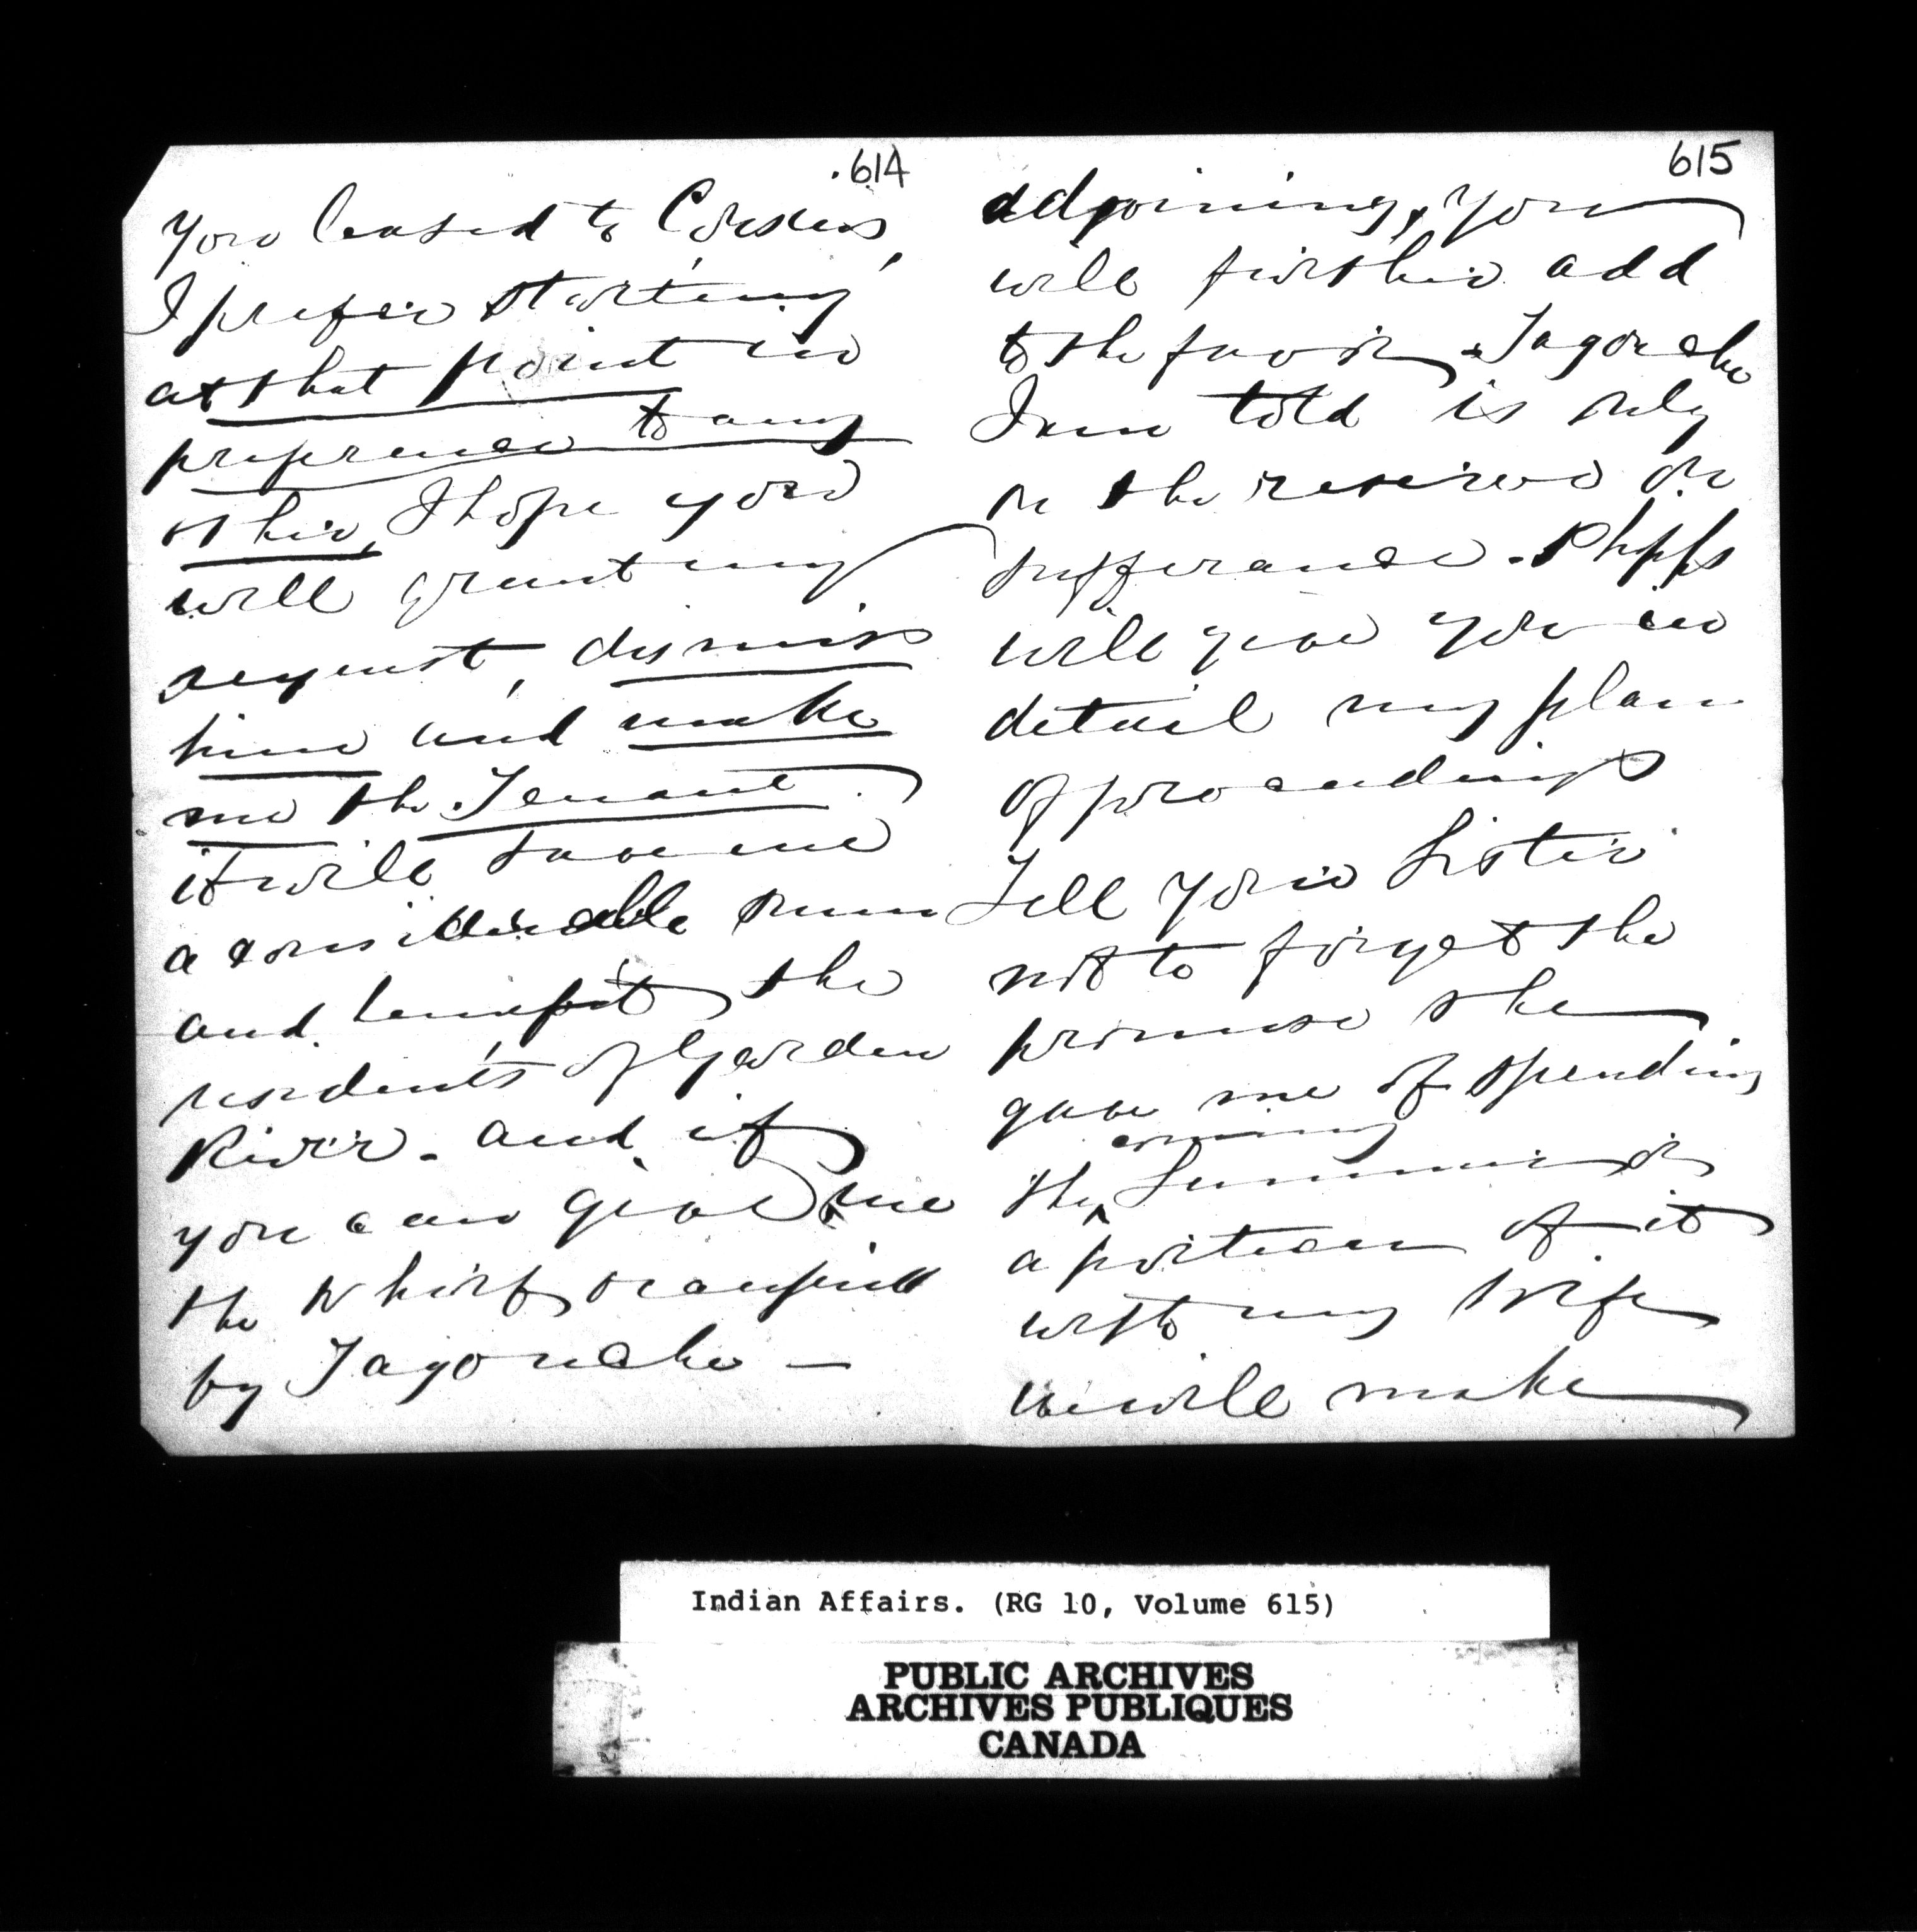 614
you leased to
I prefer starting
at that point in
preference to any
other, I hope you
will grant my
request, dismiss
him and make
me the Tenant
it will save me
a considerable sum
and benefit the
residents of Garden
River - and if
you can give me
the Wharf occupied
by Tagouche —
615
adjoining, you
will further add
to the favor - Tagouche
I am told is only
on the reserve on
sufferance - Phipps
will give you in
detail my plan
of proceedings
Tell your Sister
not to forget the
promise she
gave me of spending
coming
the ^ Summer or
a portion of it
with my Wife
we will make
Indian Affairs. (RG 10, Volume 615)
PUBLIC ARCHIVES
ARCHIVES PUBLIQUES
CANADA